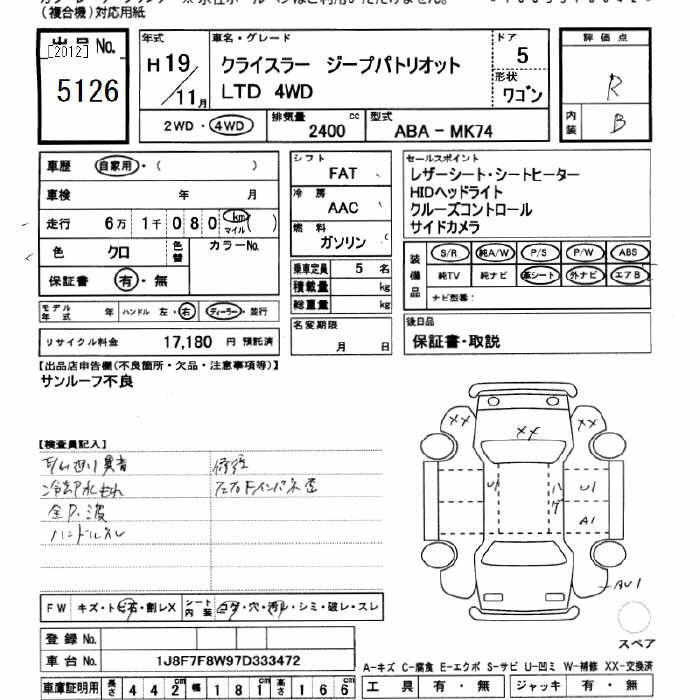 (複合機)対応用紙
出品No.
[2012]
5126
年式
H19/11月
車名・グレード
クライスラー ジープパトリオット
LTD 4WD
ドア
5
形状
ワゴン
評価点
R
内装
B
2WD・4WD
排気量
2400 cc
型式
ABA - MK74
車歴 自家用・( )
車検 年 月
走行 6万 1千 0 8 0 km マイル ( )
色 クロ 色替 カラーNo.
保証書 有・無
モデル年式 年 ハンドル 左・右 ディーラー・並行
リサイクル料金 17,180 円 預託済
シフト
FAT
冷房
AAC
燃料
ガソリン
乗車定員 5 名
積載量 kg
総重量 kg
名変期限
月 日
セールスポイント
レザーシート・シートヒーター
HIDヘッドライト
クルーズコントロール
サイドカメラ
装備品
S/R 純A/W P/S P/W ABS
純TV 純ナビ 革シート 外ナビ エアB
ナビ型番:
後日品
保証書・取説
【出品店申告欄(不良箇所・欠品・注意事項等)】
サンルーフ不良
【検査員記入】
冷却水もれ
ハンドルスレ
XX XX XX
U1 U1
A1
AU1
FW キズ・トビ石・割レX シート内装 コゲ・穴・汚レ・シミ・破レ・スレ
スペア
登録No.
車台No. 1J8F7F8W97D333472
A-キズ C-腐食 E-エクボ S-サビ U-凹ミ W-補修 XX-交換済
車庫証明用 長さ 442cm 幅 181cm 高さ 166cm
工具 有・無 ジャッキ 有・無